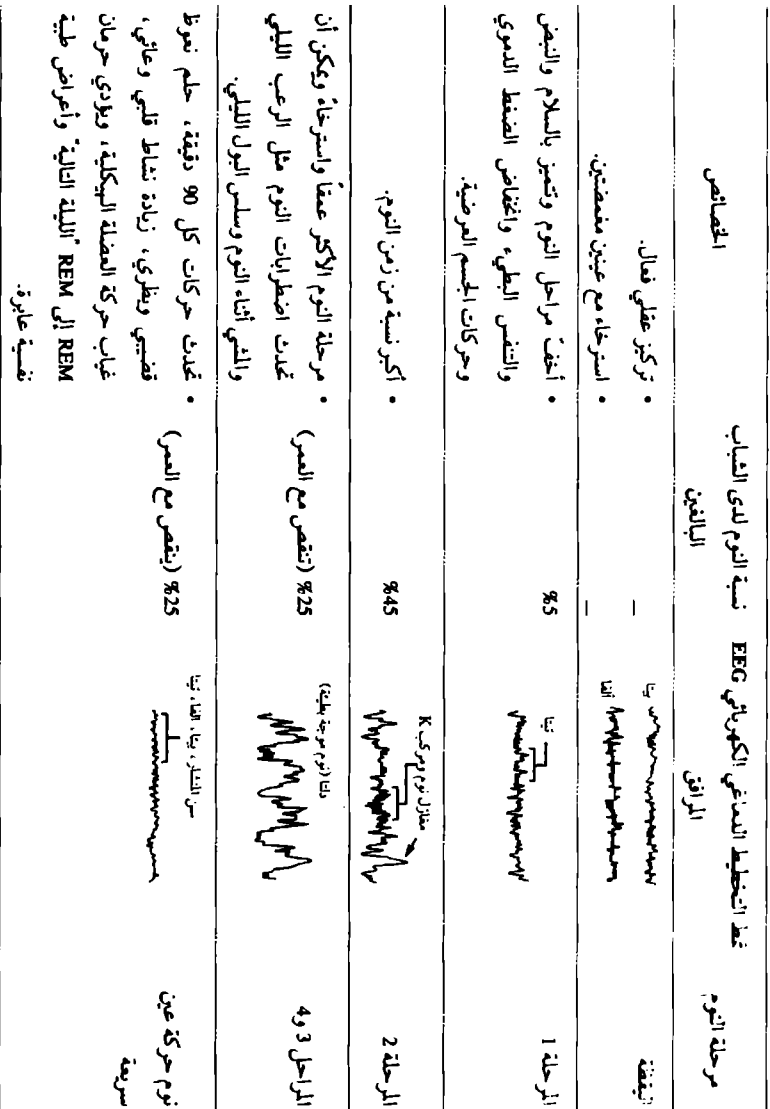 مرحلة النوم
نمط التخطيط الدماغي الكهربائي EEG المرافق
نسبة النوم لدى الشباب البالغين
الخصائص
اليقظة
بيتا
–
• تركيز عقلي فعال.
ألفا
–
• استرخاء مع عينين مغمضتين.
المرحلة 1
ثيتا
%5
• أخف مراحل النوم وتتميز بالسلام والنبض
والتنفس البطيء وانخفاض الضغط الدموي
وحركات الجسم العرضية.
المرحلة 2
مغازل نوم ومركب K
%45
• أكبر نسبة من زمن النوم.
المراحل 3 و4
دلتا (نوم موجة بطيئة)
%25 (تنقص مع العمر)
• مرحلة النوم الأكثر عمقاً واسترخاءً ويمكن أن
تحدث اضطرابات النوم مثل الرعب الليلي
والمشي أثناء النوم وسلس البول الليلي.
نوم حركة عين
سريعة
سن المنشار، بيتا، ألفا، ثيتا
%25 (ينقص مع العمر)
• تحدث حركات كل 90 دقيقة، حلم نعوظ
قضيبي وبظري، زيادة نشاط قلبي وعائي،
غياب حركة العضلة الهيكلية، ويؤدي حرمان
REM إلى REM "الليلة التالية" وأعراض طبية
نفسية عابرة.